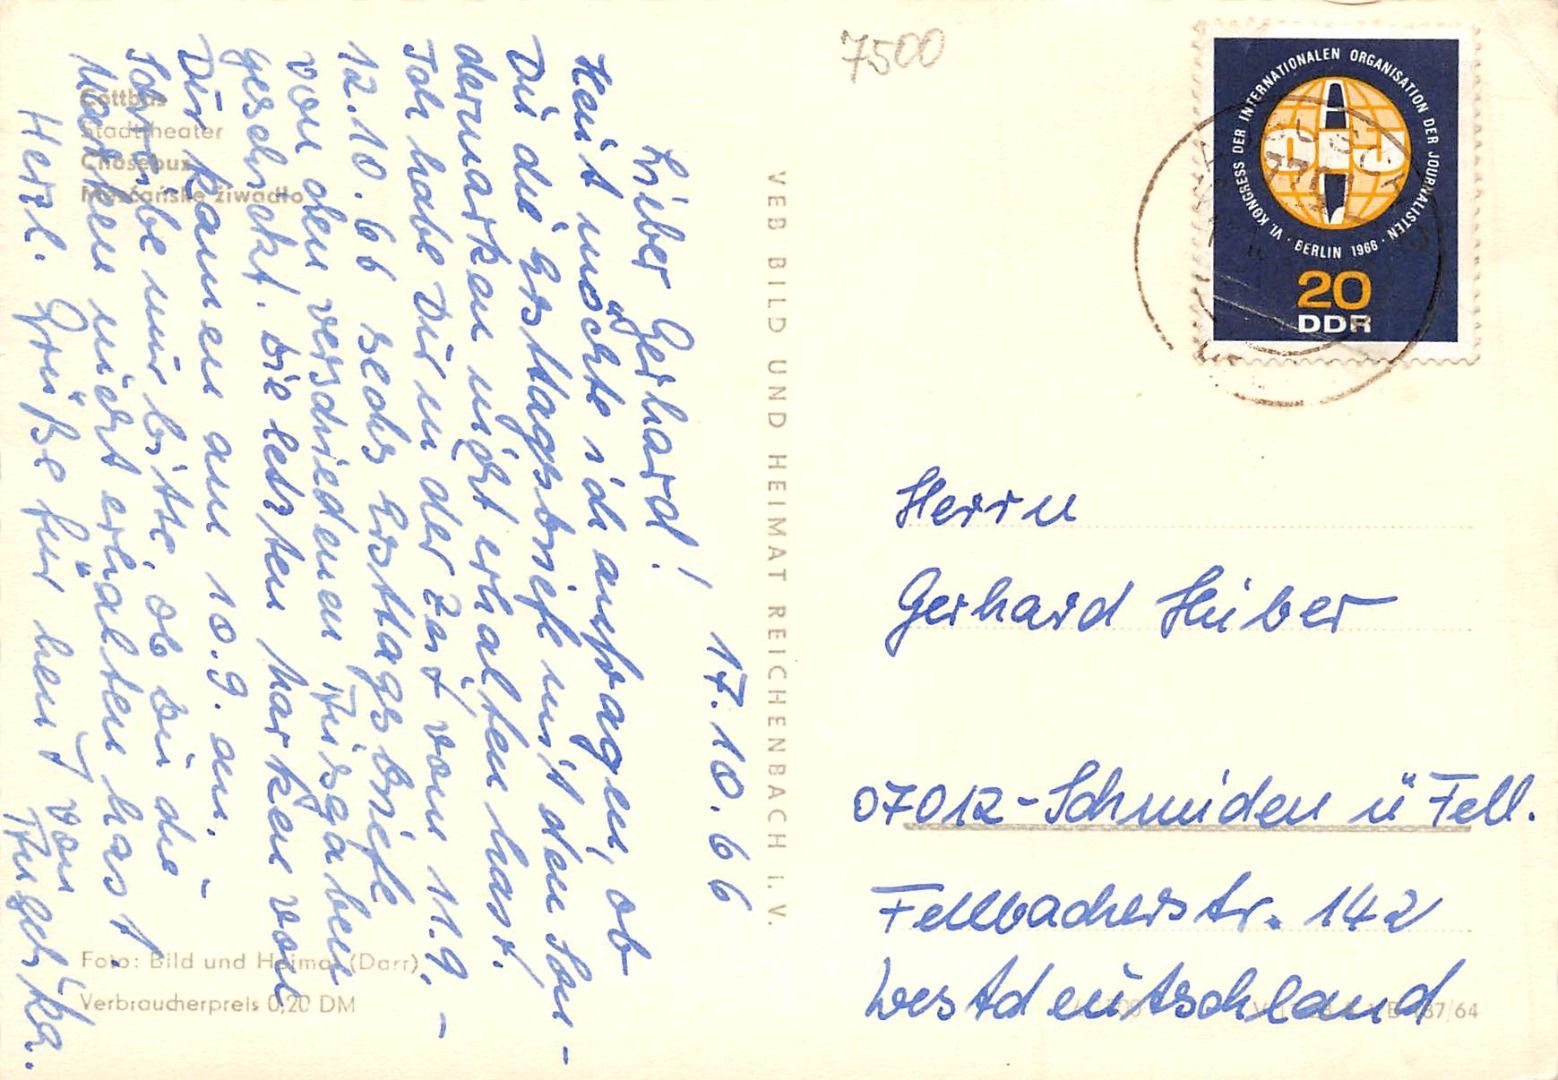 7500
VI. KONGRESS DER INTERNATIONALEN ORGANISATION DER JOURNALISTEN · BERLIN 1966 ·
20
DDR
Cottbus
Stadttheater
Chośebuz
Měsćańske źiwadło
17.10.66
Liber Gerhard!
Heut möchte ich anfragen, ob
Du die Ersttagsbriefe mit den Son-
dermarken nicht erhalten hast.
Ich habe Dir in der Zeit vom 11.9. -
12.10.66 sechs Ersttagsbriefe
von den verschiedenen Ausgaben
geschickt. Die letzten Marken von
Dir kamen am 10.9. an. -
Schreibe mir bitte, ob Du die
Marken nicht erhalten hast.
Herzl. Grüße für heut von
Foto: Bild und Heimat (Darr)
Verbraucherpreis 0,20 DM
VEB BILD UND HEIMAT REICHENBACH i. V.
Herrn
Gerhard Huber
07012-Schmiden ü Fell.
Fellbacherstr. 142
Westdeutschland